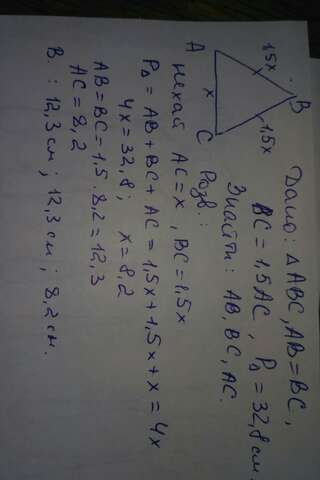 Дано: △ABC, AB=BC,
BC=1,5AC, P△=32,8см.
Знайти: AB, BC, AC.
B
1,5x
1,5x
A
x
C
Розв.:
Нехай AC=x, BC=1,5x
P△=AB+BC+AC=1,5x+1,5x+x=4x
4x=32,8; x=8,2
AB=BC=1,5·8,2=12,3
AC=8,2
В.: 12,3см; 12,3см; 8,2см.